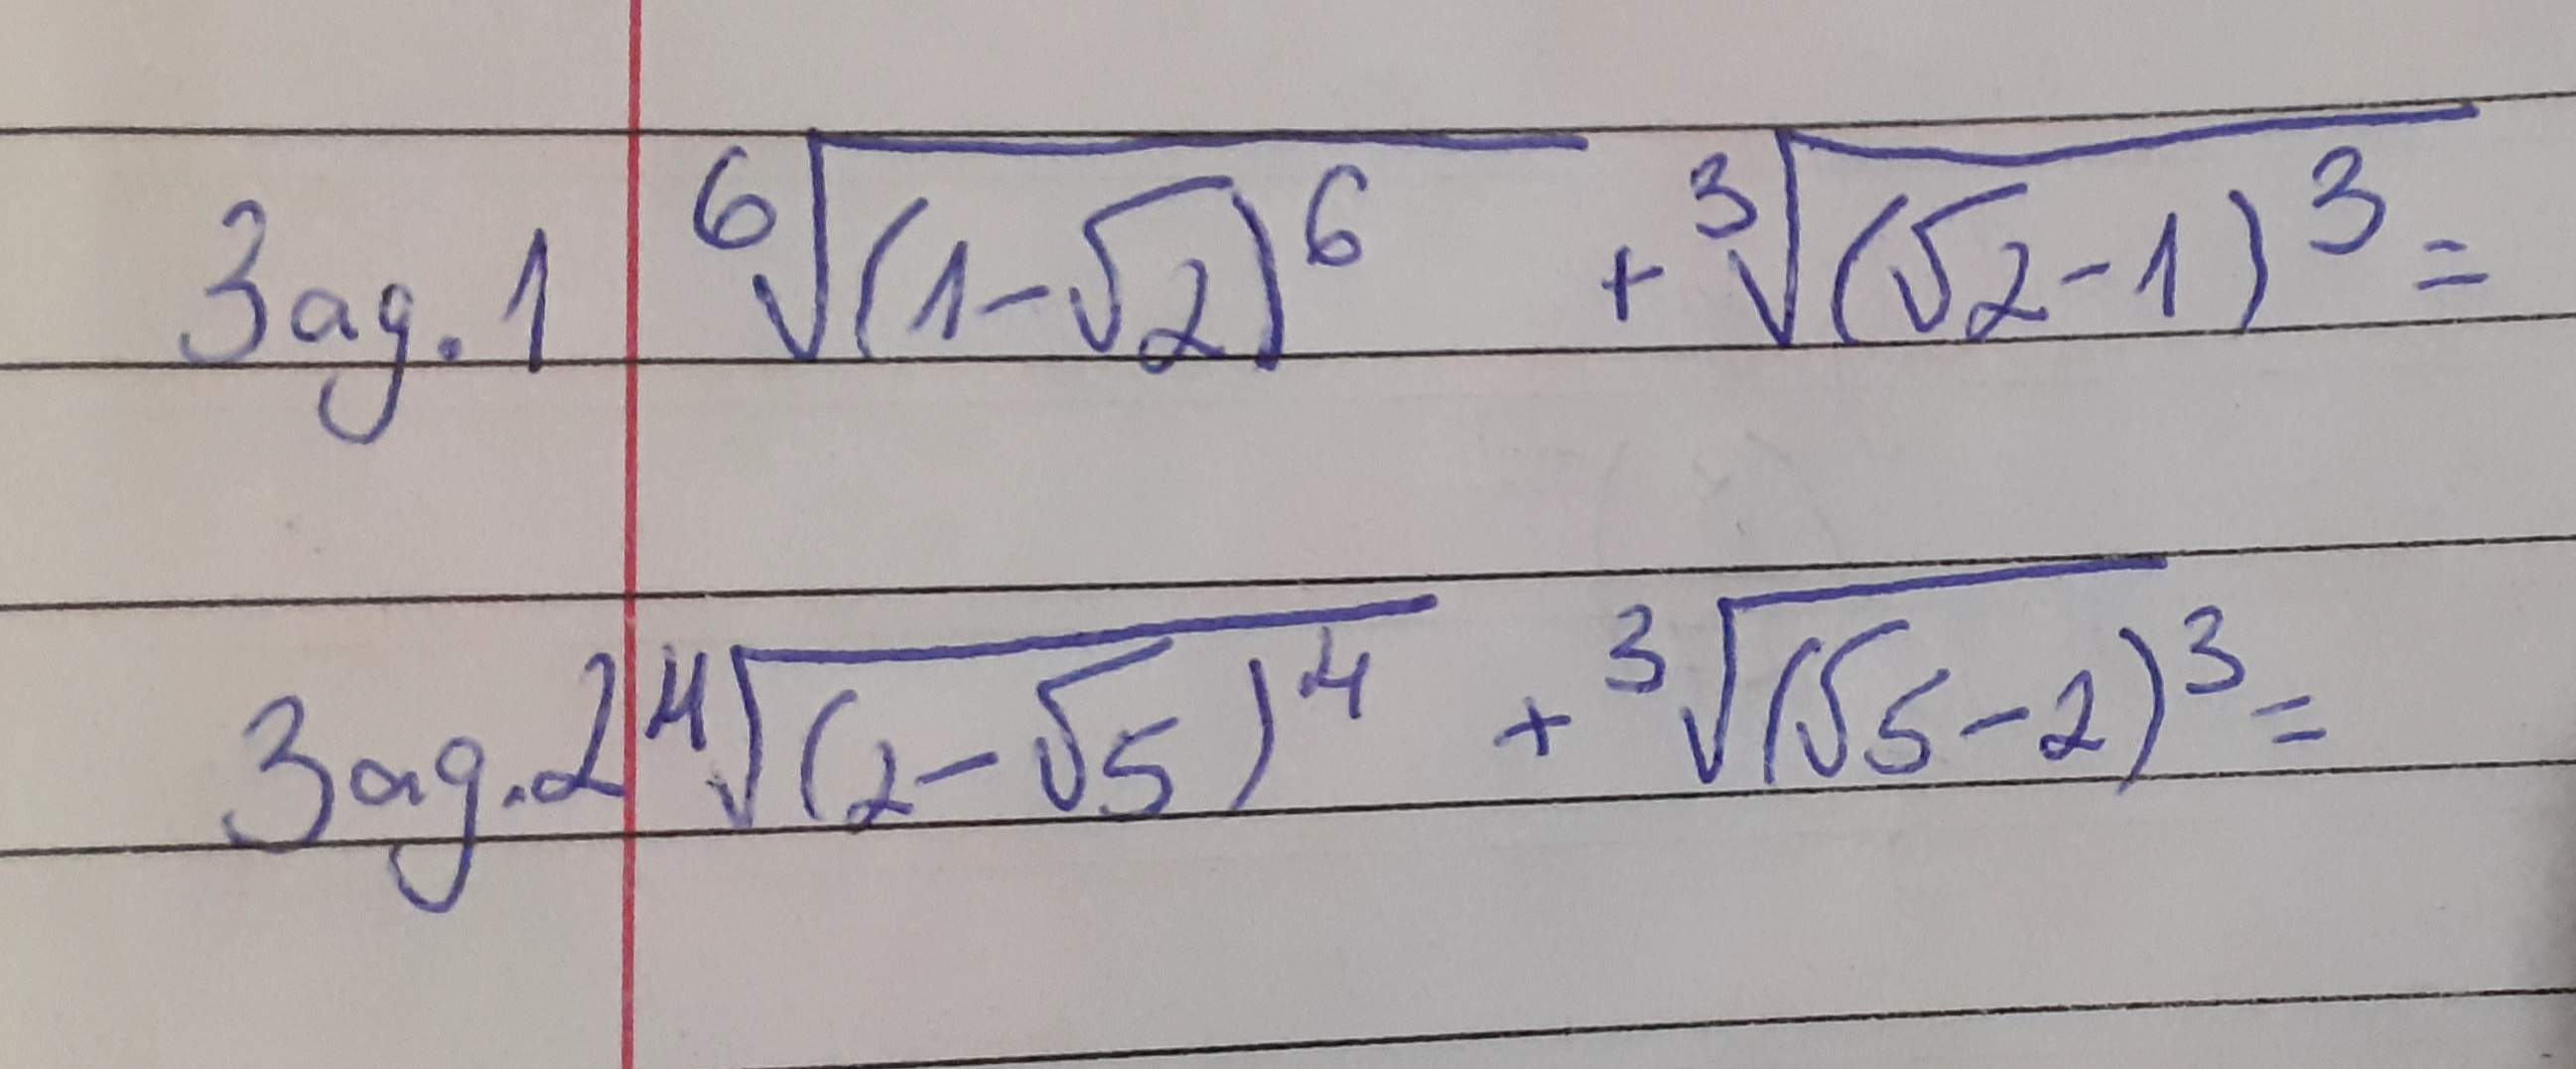 Зад. 1 ⁶√(1-√2)⁶ + ³√(√2-1)³ =
Зад. 2 ⁴√(2-√5)⁴ + ³√(√5-2)³ =